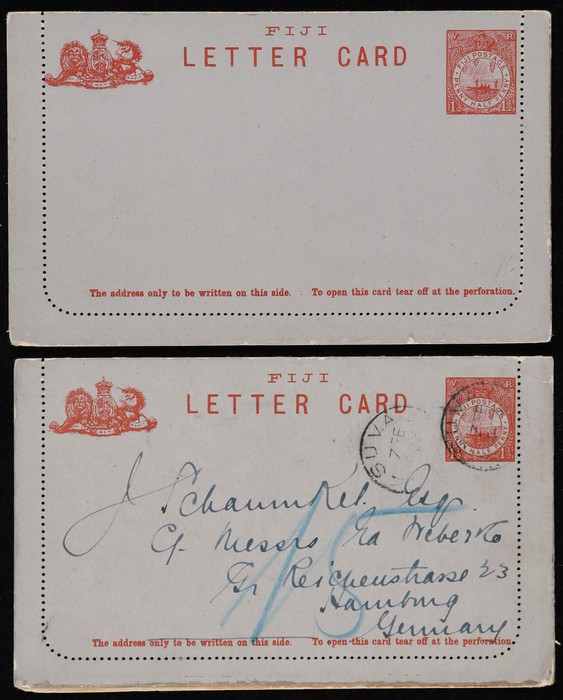 FIJI
LETTER CARD
V R
FIJI POSTAGE
PENNY HALF PENNY
1½ 1½
The address only to be written on this side. To open this card tear off at the perforation.
FIJI
LETTER CARD
V R
FIJI POSTAGE
PENNY HALF PENNY
1½
SUVA
7 FE
Esq.
C/- Messrs Ed Weber & Co
Gr Reichenstrasse 23
Hamburg
Germany
15
The address only to be written on this side. To open this card tear off at the perforation.